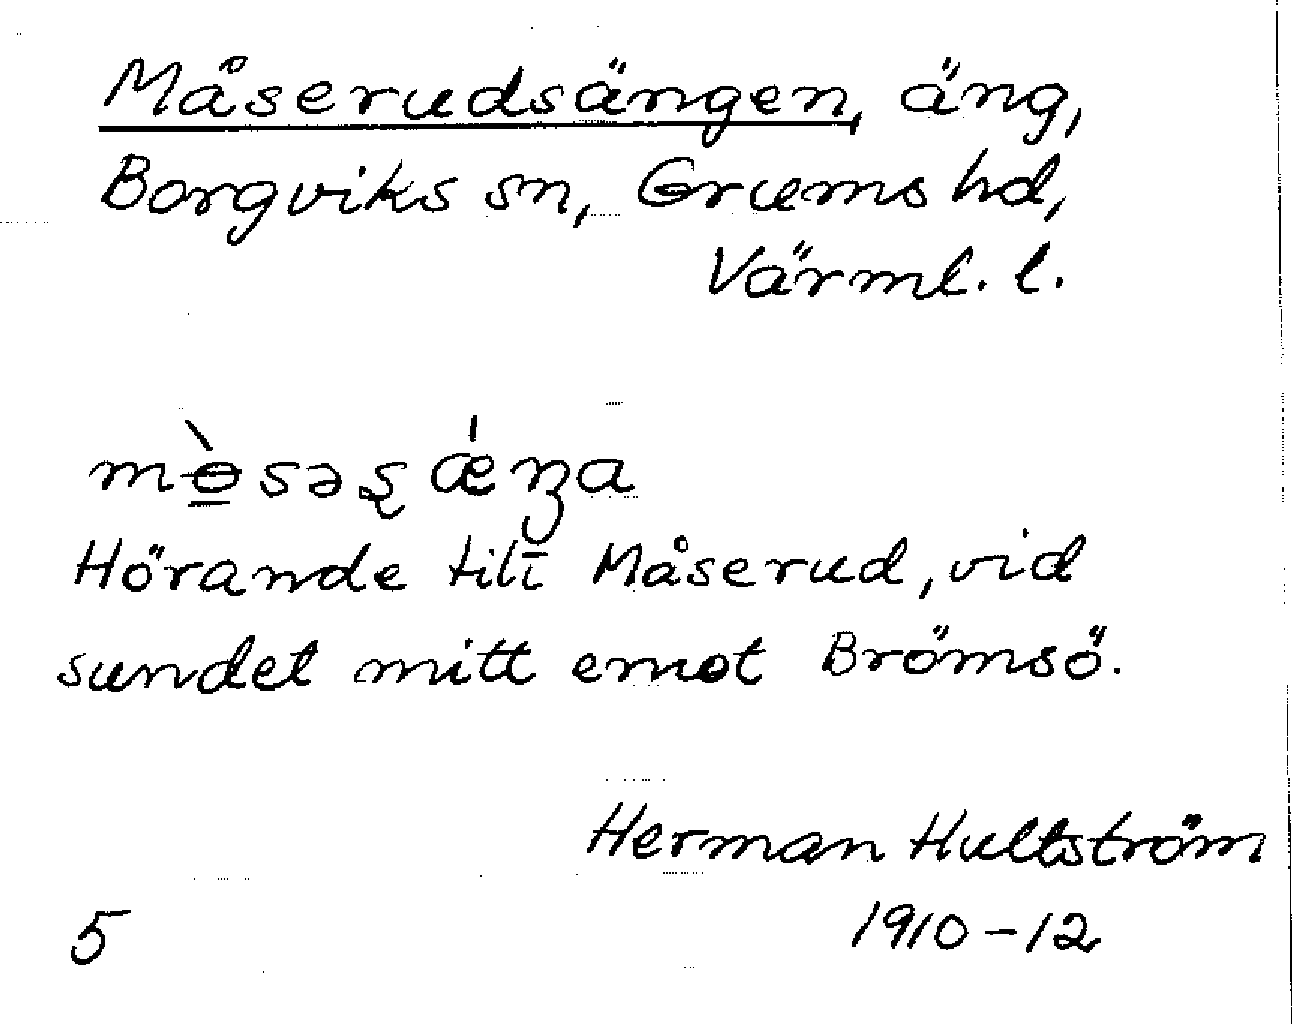 Måserudsängen, äng,
Borgviks sn, Grums hd,
Värml. l.
mɵ̠̀səʂǽŋa
Hörande till Måserud, vid
sundet mitt emot Brömsö.
Herman Hultström
5 1910-12